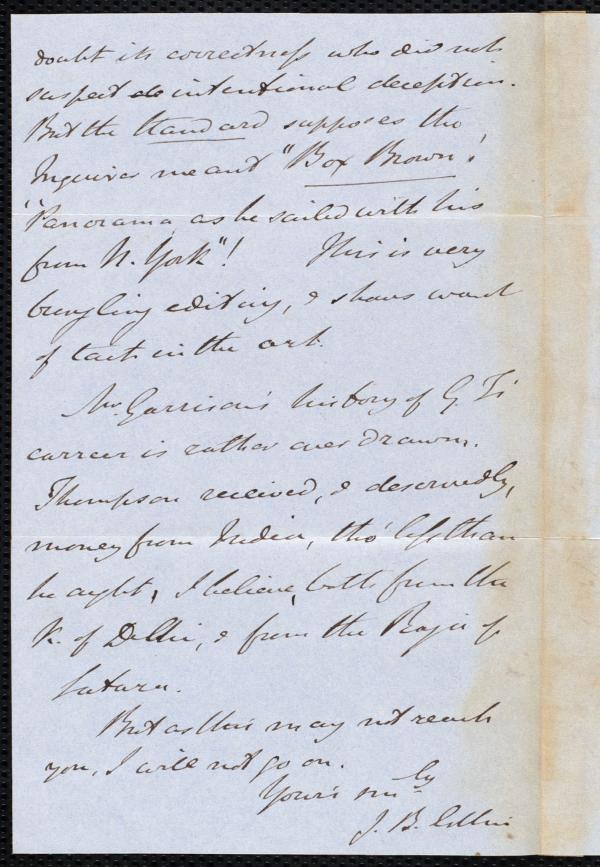 doubt its correctness who did not
suspect intentional deception.
But the Standard supposes the
Inquirer meant "Box Brown's
"Panorama, as he sailed with his
from N. York"! This is very
bungling editing, & shows want
of tact in the art.
Mr. Garrison's history of G. T's
carreer is rather over drawn.
Thompson received, & deservedly,
money from India, tho' less than
he aught, I believe, both from the
K. of Delhi, & from the Raja of
Satara.
But as this may not reach
you, I will not go on.
Yours sinly
J. B.